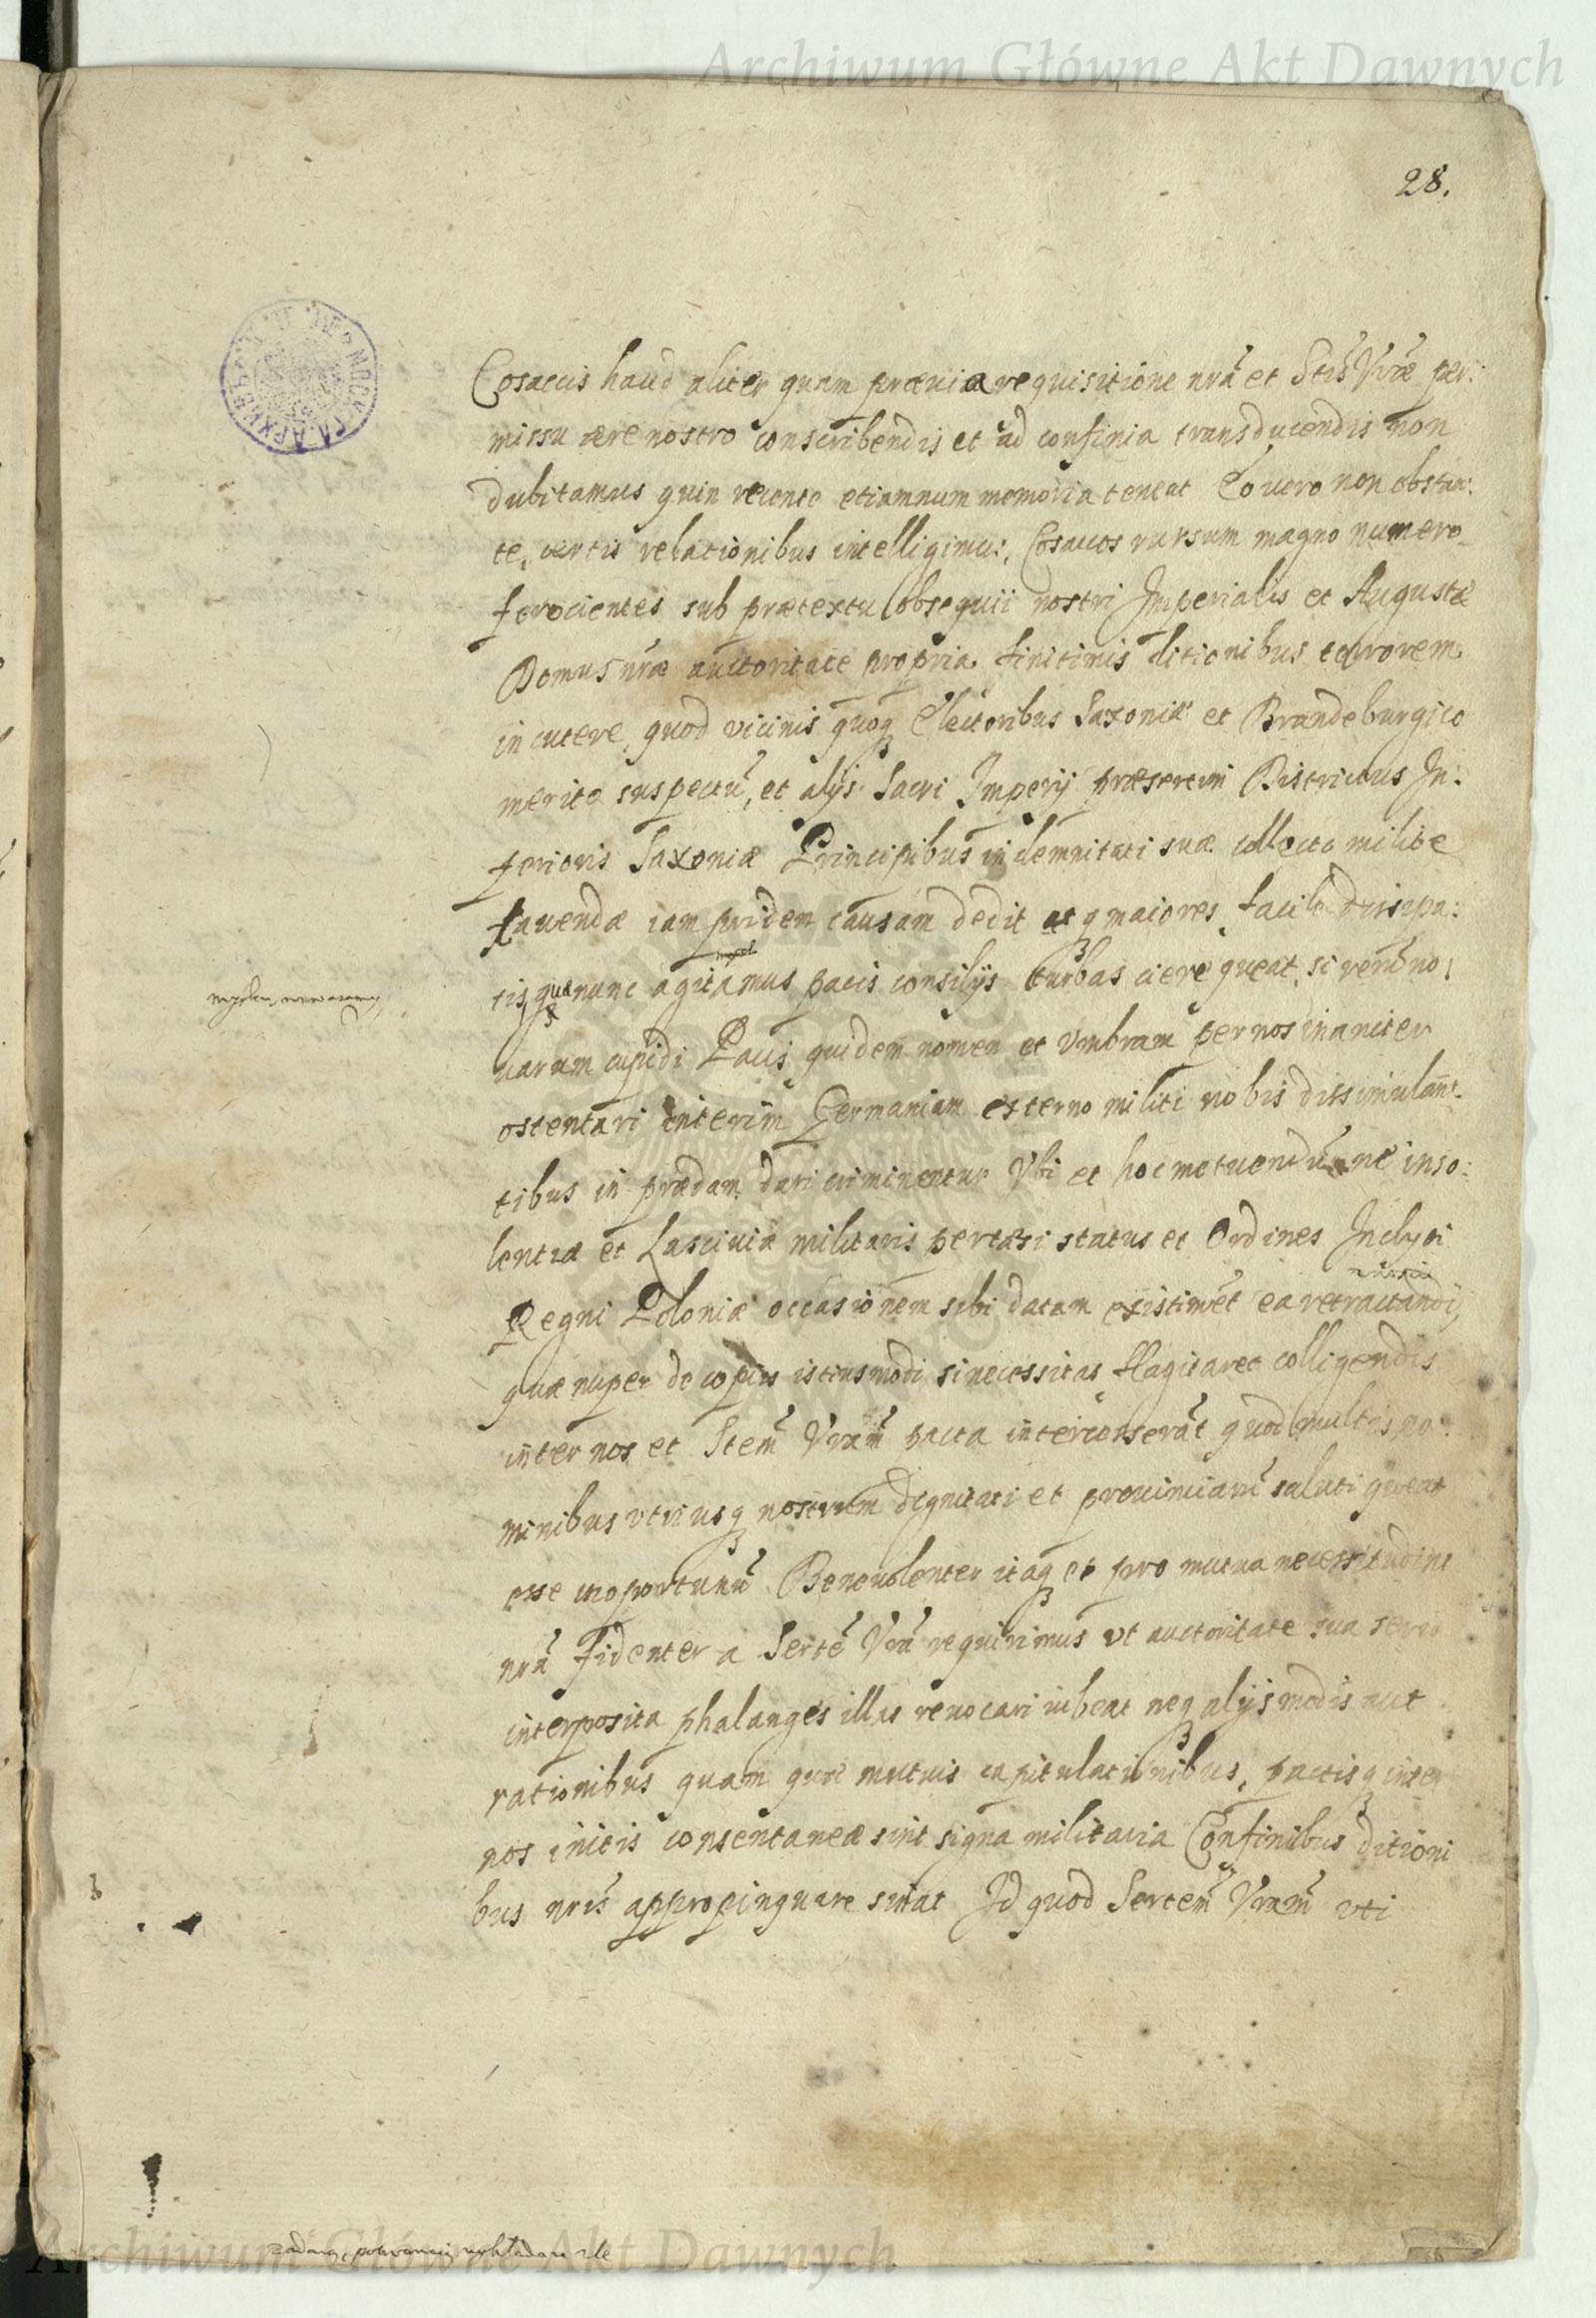 Archiwum Główne Akt Dawnych
28.
Cosaccis haud aliter quam prævia requisitione nrã et Stis Vræ per:
missu ære nostro conscribendis et ad confinia transducendis non
dubitamus quin recente etiamnum memoria teneat Eo vero non obstan:
te, certis relationibus intelligimus, Cosacos rursum magno numero
ferocientes sub prætextu obsequii nostri Imperialis et Augustæ
Domus nræ auctoritate propria finitimis ditionibus terrorem
incutere, quod vicinis quoq Electoribus Saxoniæ et Brandeburgico
merito suspectũ, et alijs Sacri Imperij præsertim Districtus In:
ferioris Saxoniæ Principibus indemnitati suæ collecto milite
cavendæ iam pridem causam dedit atq maiores, facile dissipa:
tis, quæ nunc agitamus pacis consilijs turbas ciere queat, si rerũ no:
varum cupidi Pacis quidem nomen et Vmbram per nos inaniter
ostentari interim Germaniam externo militi nobis dissimulan:
tibus in prædam dari criminentur Vbi et hoc metuendũ ne inso:
lentiæ et Lasciviæ militaris pertæsi status et Ordines Inclyti
Regni Poloniæ occasionem sibi datam existimẽt ea retractandi,
quæ nuper de copiis istiusmodi si necessitas flagitaret colligendis
inter nos et Stem Vram pacta intercesserãt quod multis no:
minibus vtriusq nostrum dignitati et provinciarũ saluti queat
esse inoportunũ. Benevolenter itaq et pro mutua necessitudine
nrã fidenter a Serte Vrã requirimus vt auctoritate sua serio
interposita phalanges illas revocari iubeat neq alijs modis aut
rationibus quam quæ mutuis capitulationibus, pactisq inter
nos initis consentaneæ sint signa militaria Confinibus ditioni
bus nris appropinquare sinat Id quod Sertem Vram vti
Archiwum Główne Akt Dawnych